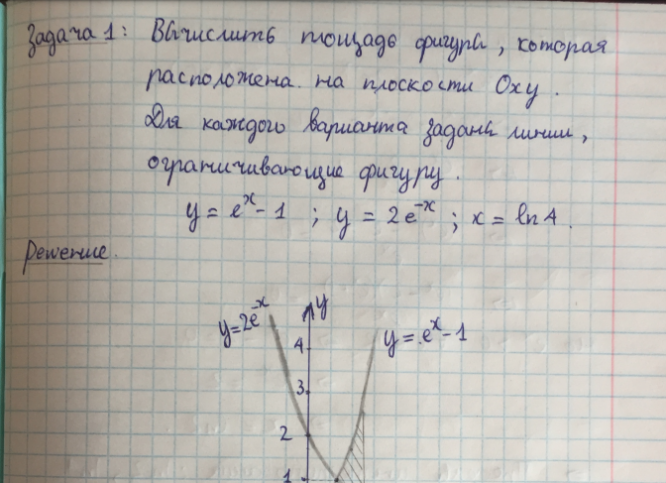 Задача 1: Вычислить площадь фигуры, которая
расположена на плоскости Oxy.
Для каждого варианта заданы линии,
ограничивающие фигуру.
y = e^x - 1 ; y = 2e^-x ; x = ln 4.
Решение.
y=2e^-x
y
y = e^x - 1
4
3
2
1